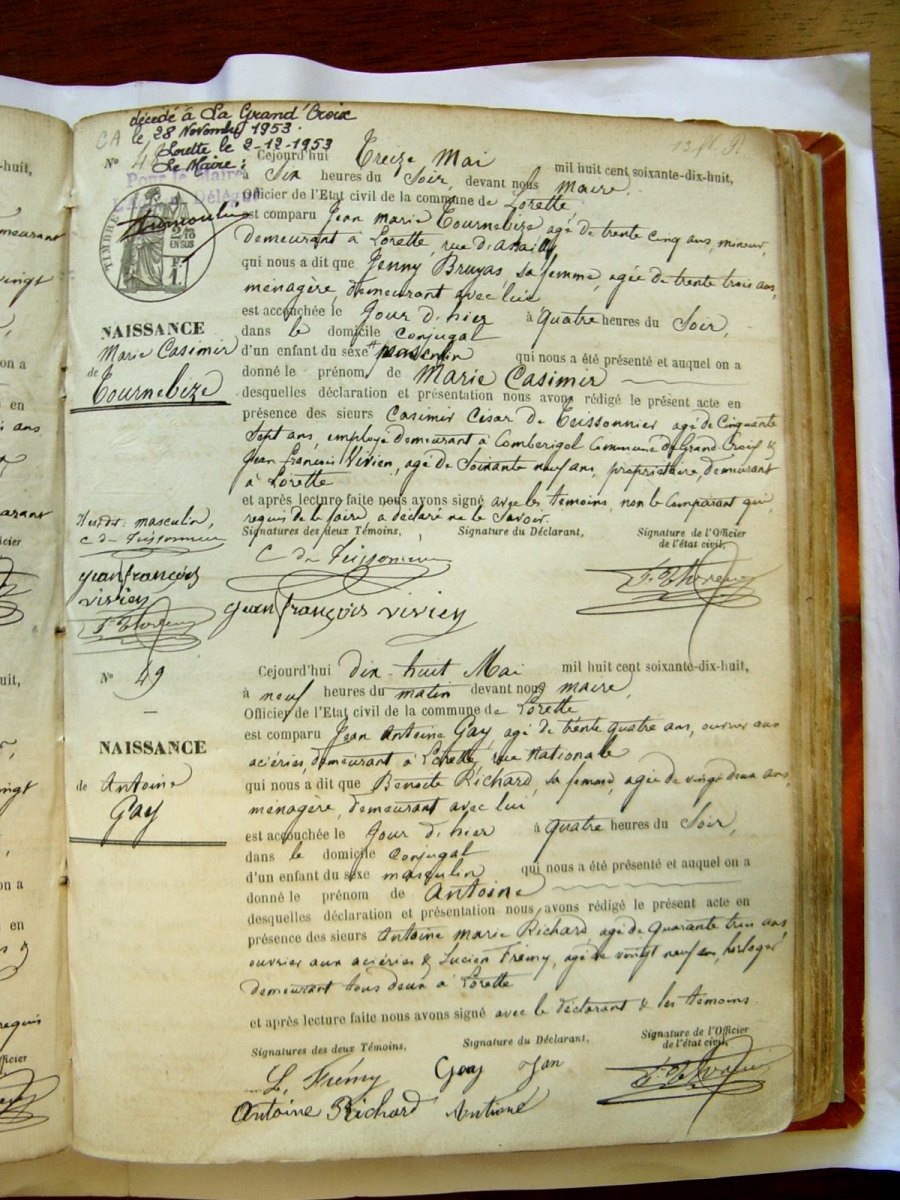 décédé à La Grand'Croix
le 28 Novembre 1953.
Lorette le 2-12-1953
Le Maire:
CA
Pour le Maire
Délégué
TIMBRE
2/10
EN SUS
N° 48 Cejourd'hui Treize Mai mil huit cent soixante-dix-huit,
à Six heures du Soir, devant nous Maire
Officier de l'Etat civil de la commune de Lorette
est comparu Jean Marie Tournebize agé de trente cinq ans, mineur,
demeurant à Lorette, rue d'
qui nous a dit que Jenny Bruyas, sa femme, agée de trente trois ans,
ménagère, demeurant avec lui
est accouchée le Jour d'hier à Quatre heures du Soir,
dans le domicile conjugal
d'un enfant du sexe masculin qui nous a été présenté et auquel on a
donné le prénom de Marie Casimir
desquelles déclaration et présentation nous avons rédigé le présent acte en
présence des sieurs Casimir César de Teissonnier agé de Cinquante
Sept ans, employé demeurant à Comberigol Commune de Grand Croix &
Jean François Vivien, agé de Soixante neuf ans, propriétaire, demeurant
à Lorette
et après lecture faite nous avons signé avec les témoins, non le Comparant qui
requis de le faire, a déclaré ne le Savoir.
Signatures des deux Témoins, Signature du Déclarant, Signature de l'Officier
de l'état civil.
NAISSANCE
Marie Casimir
de
Tournebize
masculin,
C de Teissonnier
jean françois
vivien
C de Teissonnier
jean françois vivien
N° 49 Cejourd'hui dix-huit Mai mil huit cent soixante-dix-huit,
à neuf heures du matin devant nous maire
Officier de l'Etat civil de la commune de Lorette
est comparu Jean Antoine Gay, agé de trente quatre ans, ouvrier aux
aciéries, demeurant à Lorette, rue Nationale
qui nous a dit que Benoite Richard, sa femme, agée de vingt deux ans,
ménagère, demeurant avec lui
est accouchée le Jour d'hier à quatre heures du Soir,
dans le domicile conjugal
d'un enfant du sexe masculin qui nous a été présenté et auquel on a
donné le prénom de Antoine
desquelles déclaration et présentation nous avons rédigé le présent acte en
présence des sieurs Antoine Marie Richard agé de Quarante trois ans,
ouvrier aux aciéries & Lucien Frémy, agé de vingt neuf ans, horloger
demeurant tous deux à Lorette
et après lecture faite nous avons signé avec le déclarant & les témoins.
Signatures des deux Témoins, Signature du Déclarant, Signature de l'Officier
de l'état civil.
NAISSANCE
de Antoine
Gay
L. Frémy Gay Jan
Antoine Richard Antoine